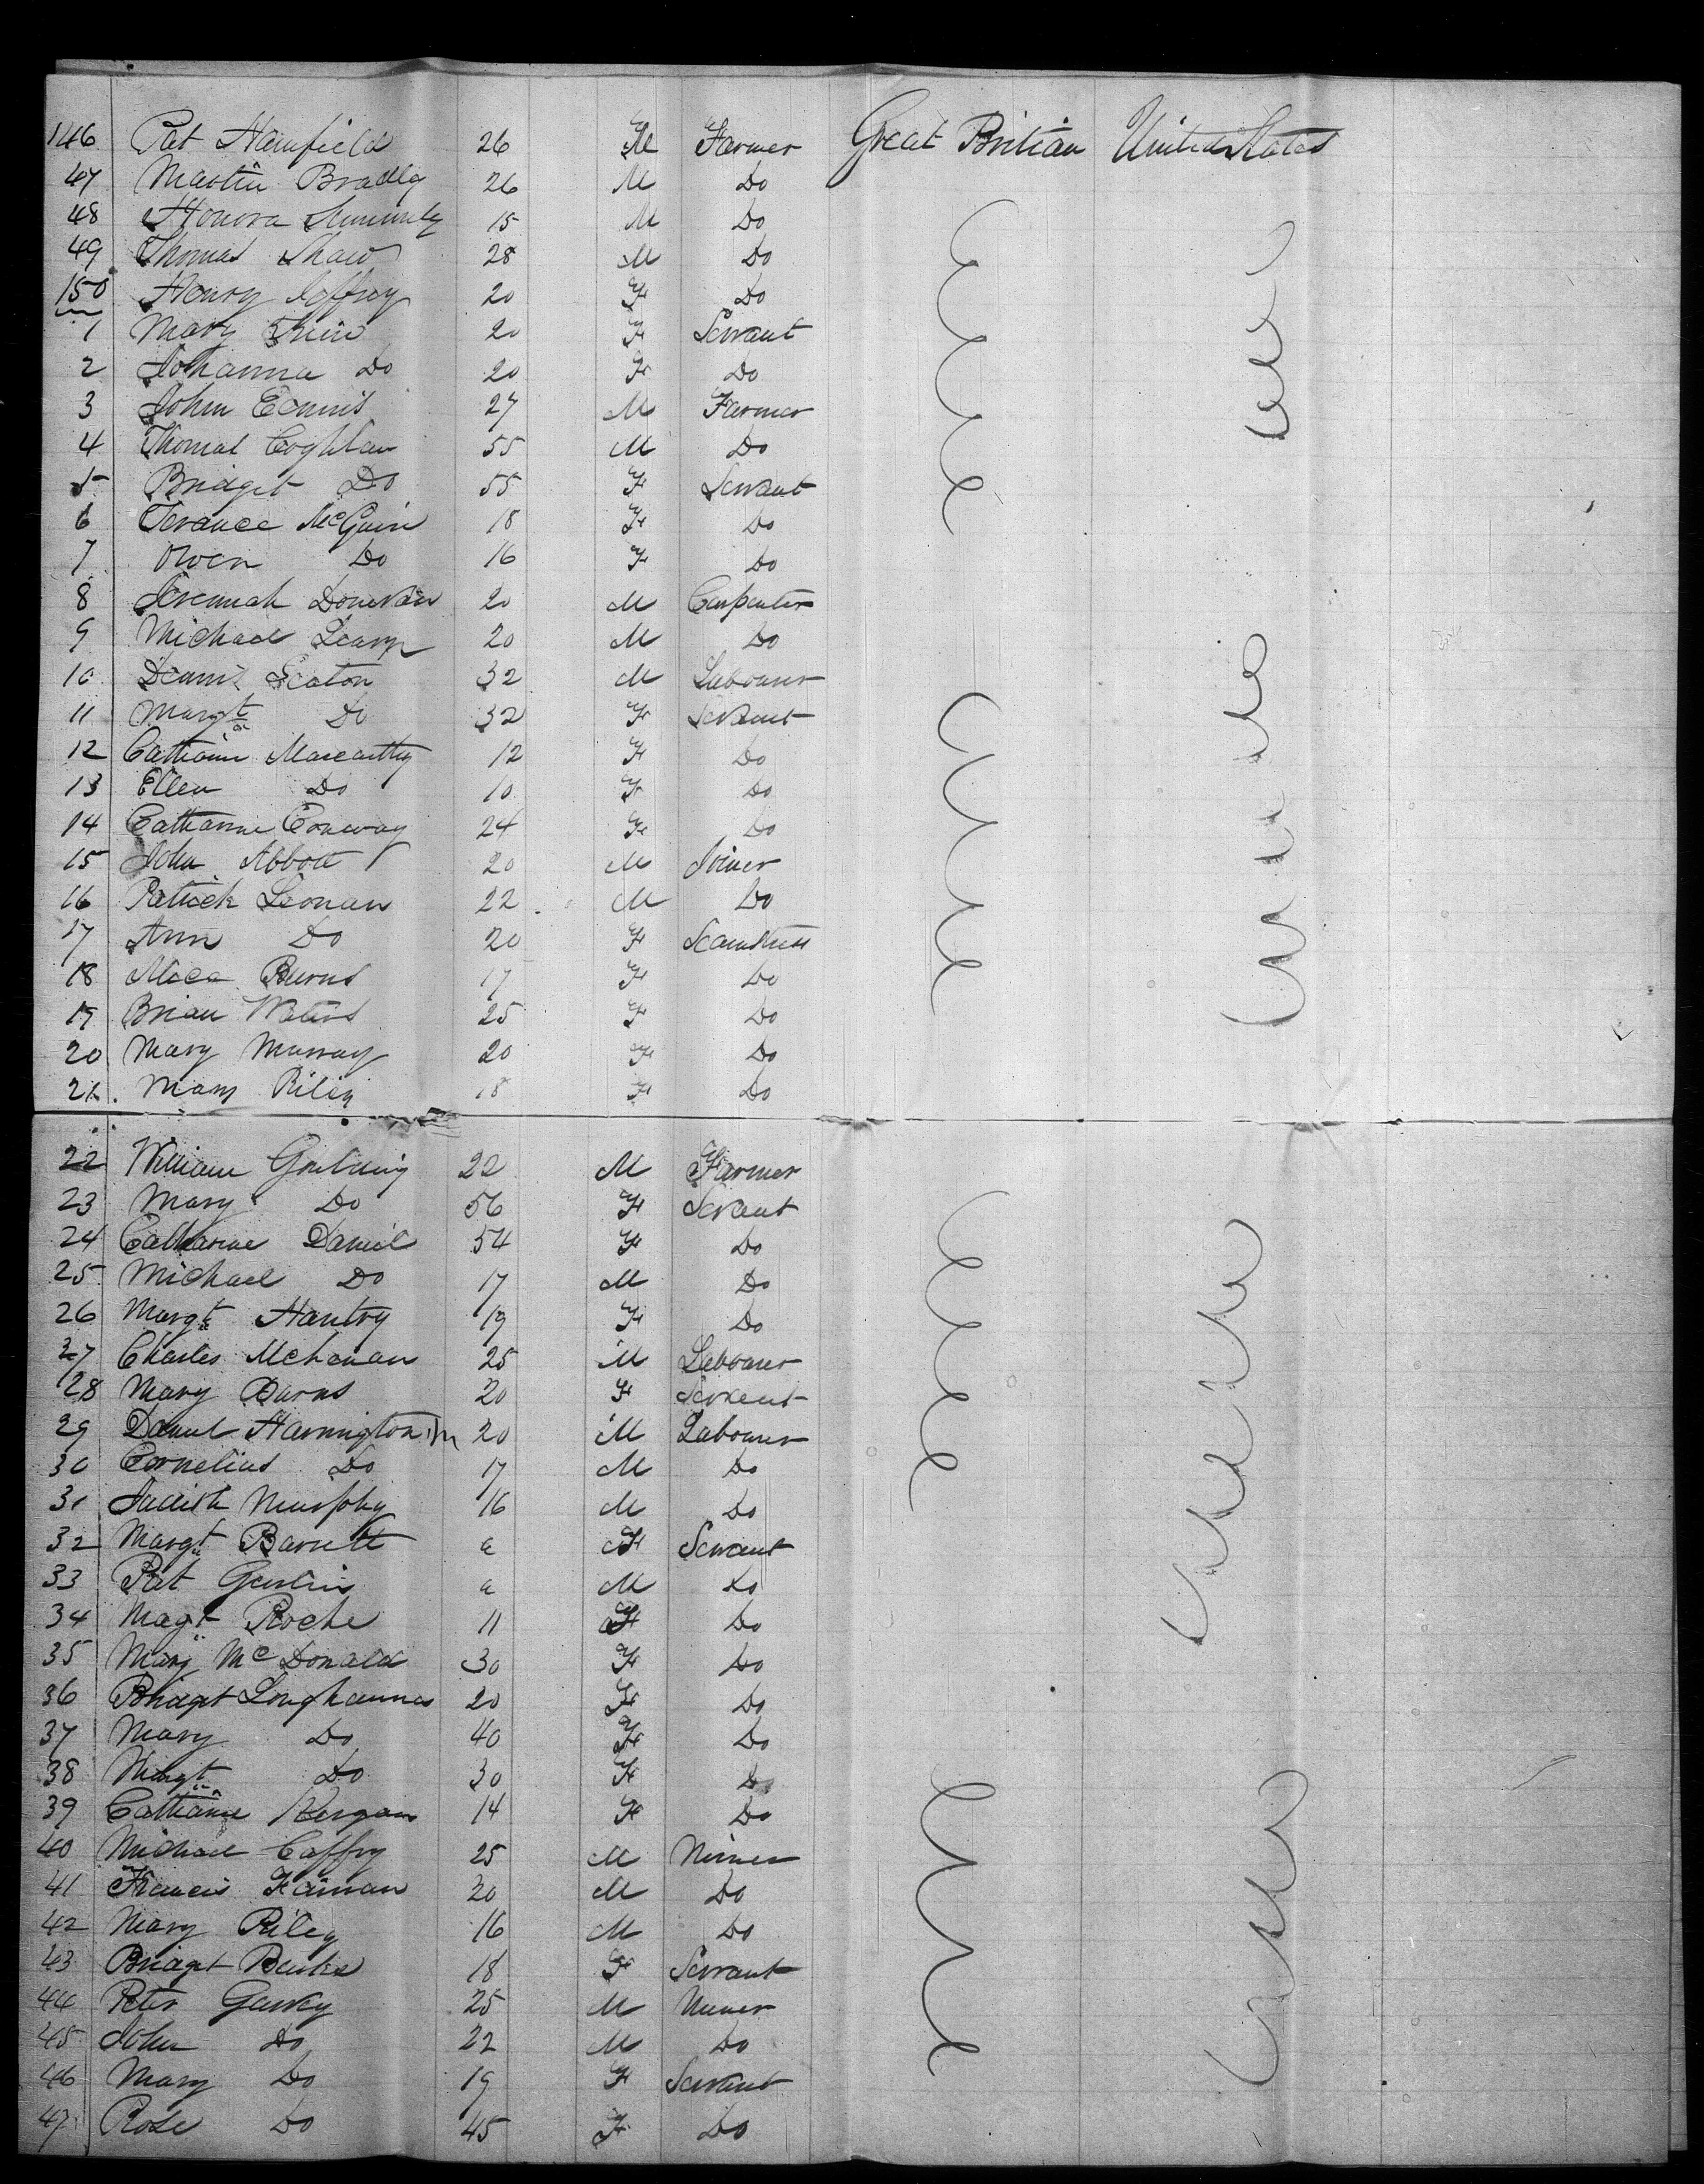 146 Pat Hanfield 26 M Farmer Great Britian United States
47 Martin Bradly 26 M Do
48 Honora 15 M Do
49 Thomas Shaw 28 M Do
150 Henry Joffroy 20 F Do
1 Mary 20 F Servant
2 Johanna Do 20 F Do
3 John Ennis 27 M Farmer
4 Thomas Coghlan 55 M Do
5 Bridget Do 55 F Servant
6 Terance McGuire 18 F Do
7 Owen Do 16 F Do
8 Jeremiah Donevan 20 M Carpenter
9 Michael Leary 20 M Do
10 Dennis 32 M Labourer
11 Margt Do 32 F Servant
12 Catharine Maccarthy 12 F Do
13 Ellen Do 10 F Do
14 Catharine Conway 24 F Do
15 John Abbott 20 M Joiner
16 Patrick Leonan 22 M Do
17 Ann Do 20 F Seamstress
18 Alica Burns 17 F Do
19 Brian Waters 25 F Do
20 Mary Murray 20 F Do
21 Mary Riley 18 F Do
22 William 22 M Farmer
23 Mary Do 56 F Servant
24 Catharine Daniel 54 F Do
25 Michael Do 17 M Do
26 Margt Hantry 19 F Do
27 Charles 25 M Labourer
28 Mary Burns 20 F Servent
29 Daniel Harrington 20 M Labourer
30 Cornelius Do 17 M Do
31 Judith Murphy 16 M Do
32 Margt Barrett a F Servant
33 Pat a M Do
34 Magt Roche 11 F Do
35 Mary McDonald 30 F Do
36 Bridget 20 F Do
37 Mary Do 40 F Do
38 Margt Do 30 F Do
39 Catharine 14 F Do
40 Michael Caffry 25 M Miner
41 Francis 20 M Do
42 Mary Riley 16 M Do
43 Bridget 18 F Servant
44 Peter Garvey 25 M Miner
45 John Do 22 M Do
46 Mary Do 19 F Servant
47 Rose Do 45 F Do